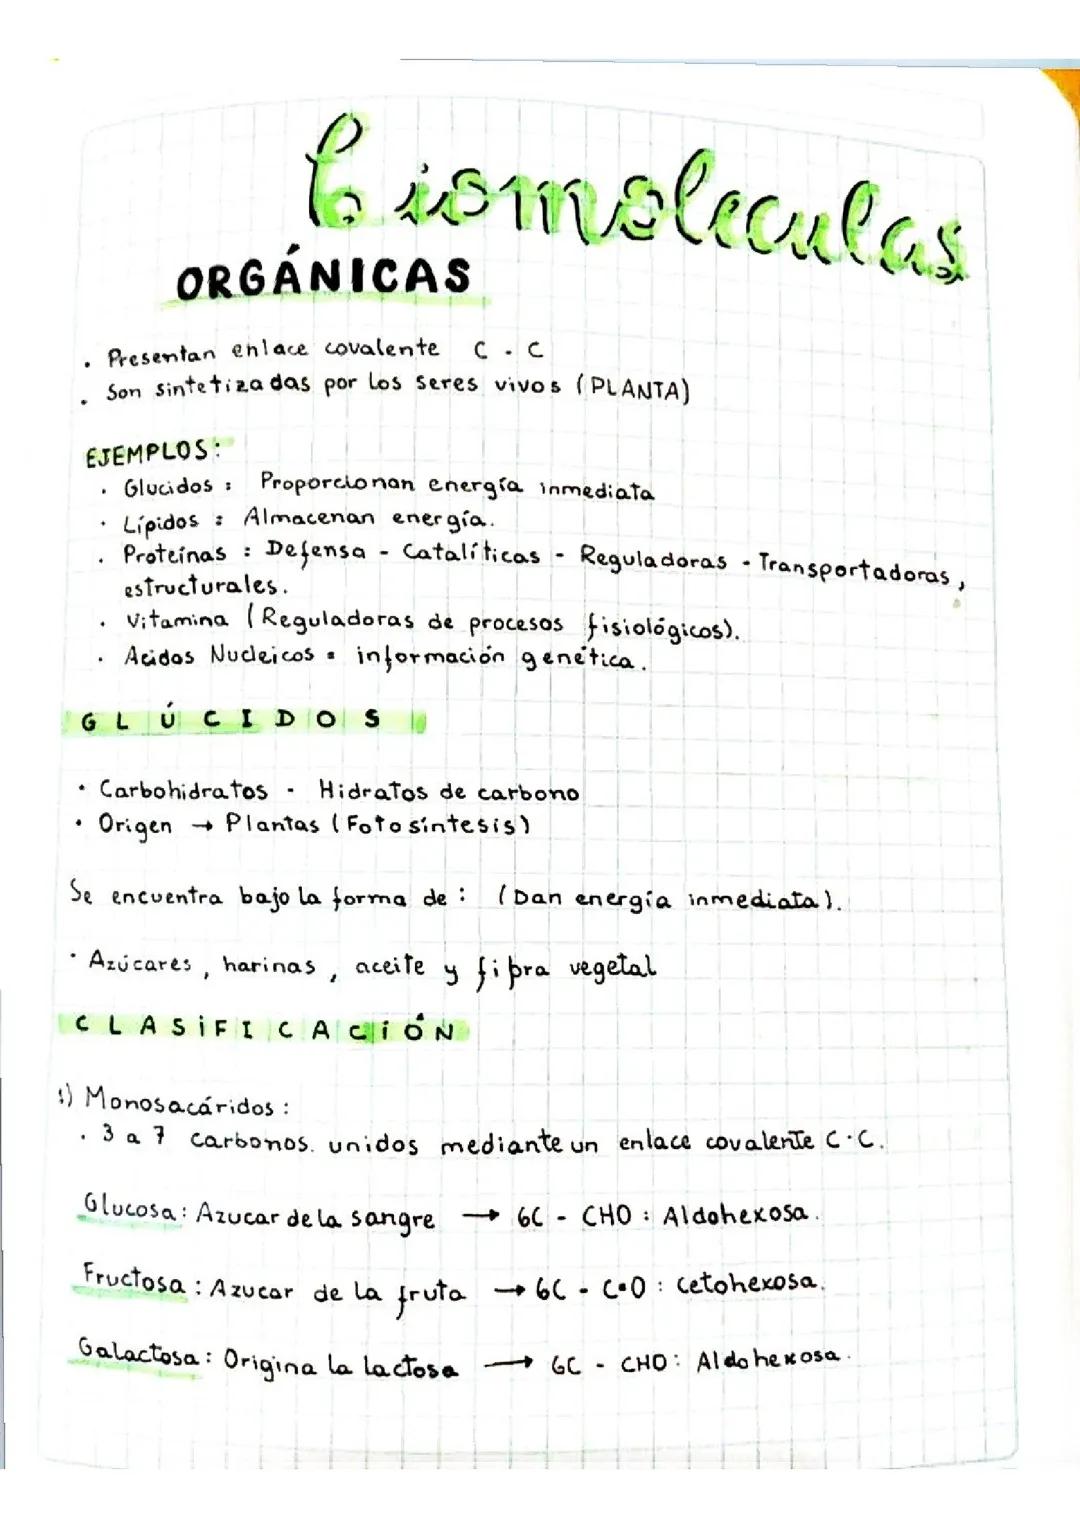 biomoleculas
ORGÁNICAS
. Presentan enlace covalente C - C
. Son sintetizadas por los seres vivos (PLANTA)
EJEMPLOS:
. Glucidos : Proporcionan energía inmediata
. Lípidos : Almacenan energía.
. Proteínas : Defensa - Catalíticas - Reguladoras - Transportadoras,
estructurales.
. Vitamina (Reguladoras de procesos fisiológicos).
. Acidos Nucleicos = información genética.
GLÚCIDOS
• Carbohidratos - Hidratos de carbono
• Origen → Plantas (Fotosíntesis)
Se encuentra bajo la forma de : (Dan energía inmediata).
• Azúcares, harinas, aceite y fibra vegetal
CLASIFICACIÓN
1) Monosacáridos :
. 3 a 7 carbonos. unidos mediante un enlace covalente C-C.
Glucosa: Azucar de la sangre → 6C - CHO : Aldohexosa.
Fructosa : Azucar de la fruta → 6C - C=O : cetohexosa.
Galactosa : Origina la lactosa → 6C - CHO : Aldohexosa.